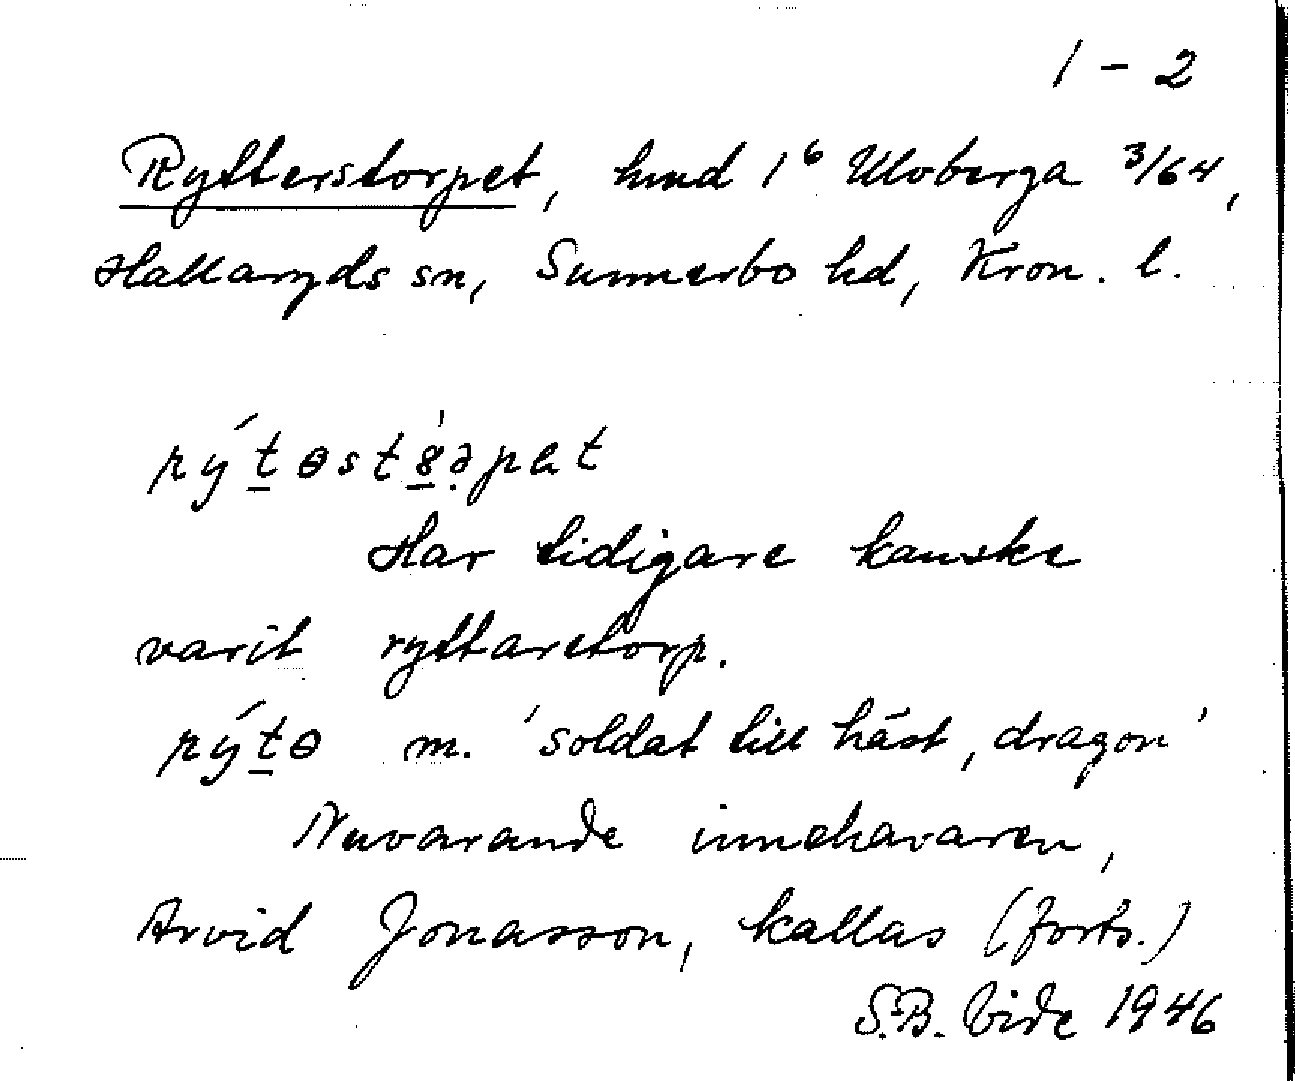 1 - 2
Rytterstorpet, hmd 1⁶ Uloberga 3/64,
Hallaryds sn, Sunnerbo hd, Kron. l.
Har tidigare kanske
varit ryttaretorp.
m. 'soldat till häst, dragon'
Nuvarande innehavaren,
Arvid Jonasson, kallas (forts.)
S.B. Vide 1946